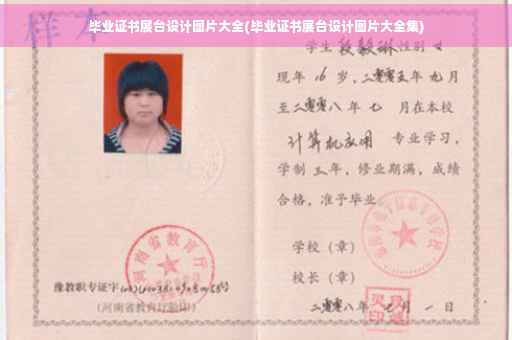 毕业证书展台设计图片大全(毕业证书展台设计图片大全集)
样本
学生 段毅琳 性别 女
现年 16 岁，二零零五年 九月
至二零零八 年 七 月在本校
计算机应用 专业学习，
学制 三 年，修业期满，成绩
合格，准予毕业
学校（章）
校长（章）
二零零八年 七 月 一 日
河南省教育厅
豫教职专证字
(河南省教育厅验印)